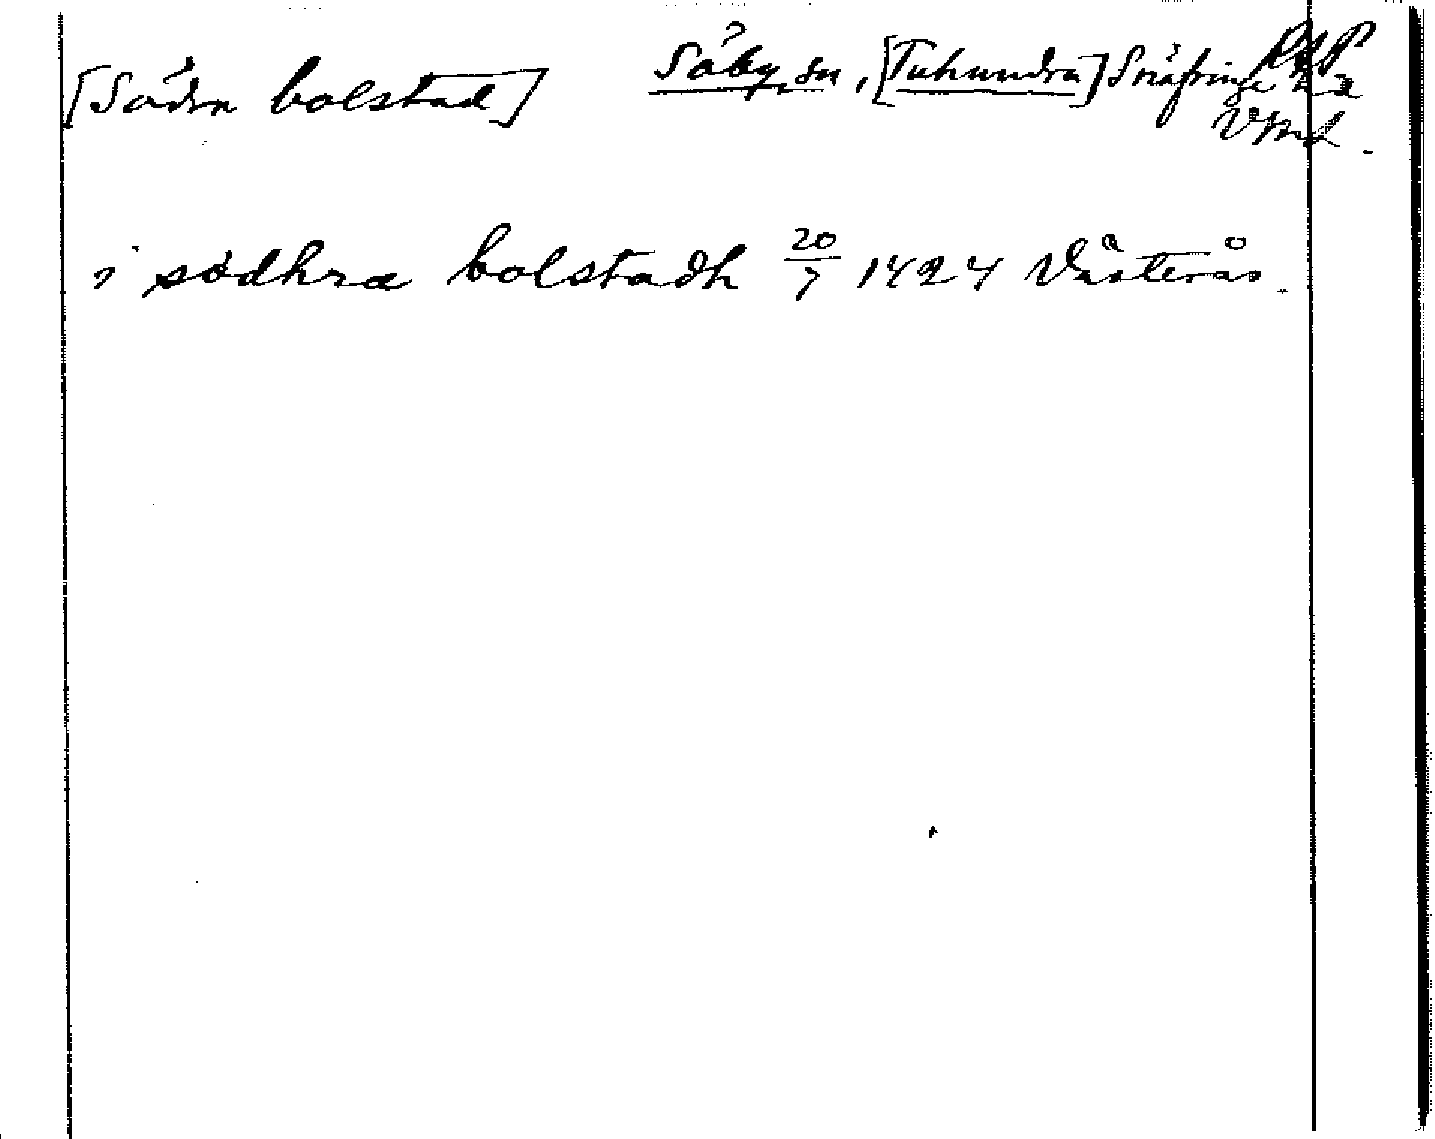 [Södra bolstad] Säby sn, [Tuhundra] Snäfringe RAP
Vml.
i södhra bolstadh 20/7 1424 Västerås.